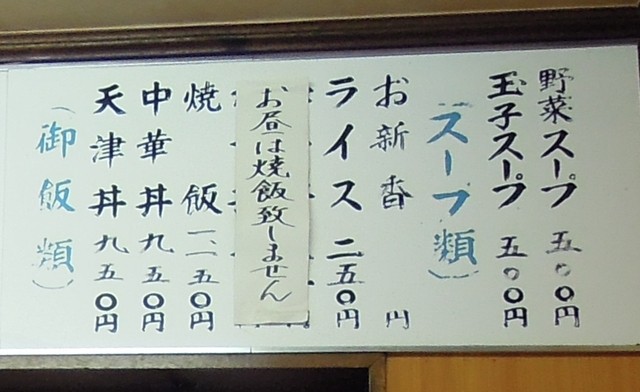 野菜スープ 五〇〇円
玉子スープ 五〇〇円
(スープ類)
お新香 円
ライス 二五〇円
お昼は焼飯致しません
焼飯 一、一五〇円
中華丼 九五〇円
天津丼 九五〇円
(御飯類)